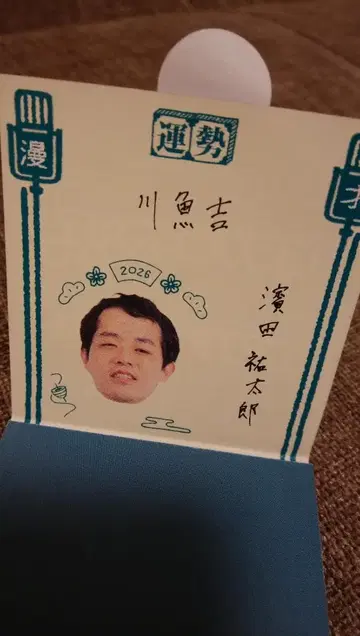 運勢
漫
才
川魚吉
2026
濱田祐太郎